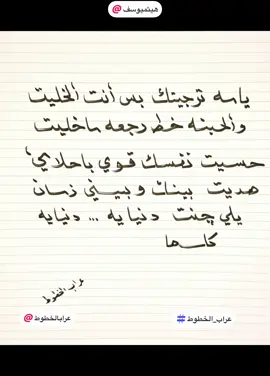 هيثم يوسف @
ياسه ترجيتك بس أنت الخليت
والمحبنه خط رجعه ماخليت
حسيت نفسك قوي باحلامي
هديت بينك و بيني زمان
يلي چنت دنيا يه ... دنيايه
كلها
عراب الخطوط
عراب_الخطوط #
عراب الخطوط @